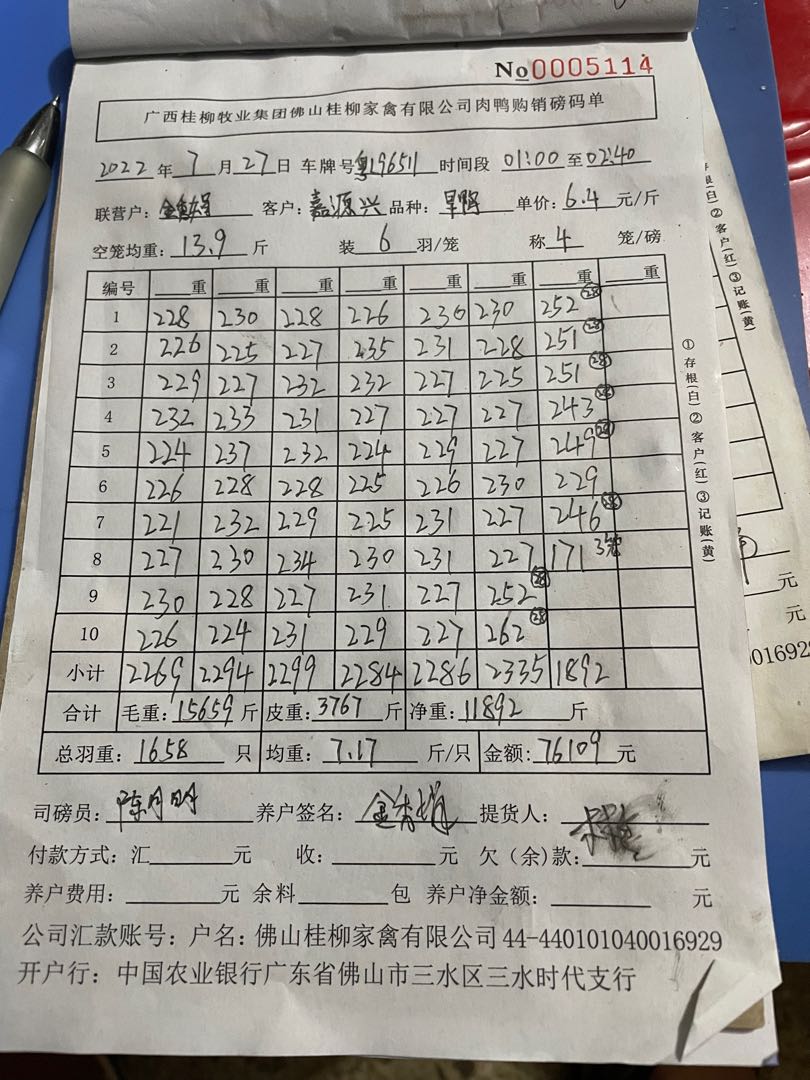 No 0005114
广西桂柳牧业集团佛山桂柳家禽有限公司肉鸭购销磅码单
2022 年 7 月 27 日 车牌号 粤196511 时间段 01:00 至 02:40
联营户: 客户: 嘉源兴 品种: 单价: 6.4 元/斤
空笼均重: 13.9 斤 装 6 羽/笼 称 4 笼/磅
编号 重 重 重 重 重 重 重 重
1 228 230 228 226 236 230 252 28
2 226 225 227 235 231 228 251 28
3 229 227 232 232 227 225 251 28
4 232 233 231 227 227 227 243 28
5 224 237 232 224 229 227 249 28
6 226 228 228 225 226 230 229
7 221 232 229 225 231 227 246 28
8 227 230 234 230 231 227 171 3笼
9 230 228 227 231 227 252 28
10 226 224 231 229 227 262 28
小计 2269 2294 2299 2284 2286 2335 1892
合计 毛重: 15659 斤 皮重: 3767 斤 净重: 11892 斤
总羽重: 1658 只 均重: 7.17 斤/只 金额: 76109 元
司磅员: 陈月明 养户签名: 金秀娟 提货人:
付款方式: 汇 元 收: 元 欠(余)款: 元
养户费用: 元 余料 包 养户净金额: 元
公司汇款账号: 户名: 佛山桂柳家禽有限公司 44-440101040016929
开户行: 中国农业银行广东省佛山市三水区三水时代支行
①存根(白)②客户(红)③记账(黄)
存根(白)②客户(红)③记账(黄)
元
元
0016929